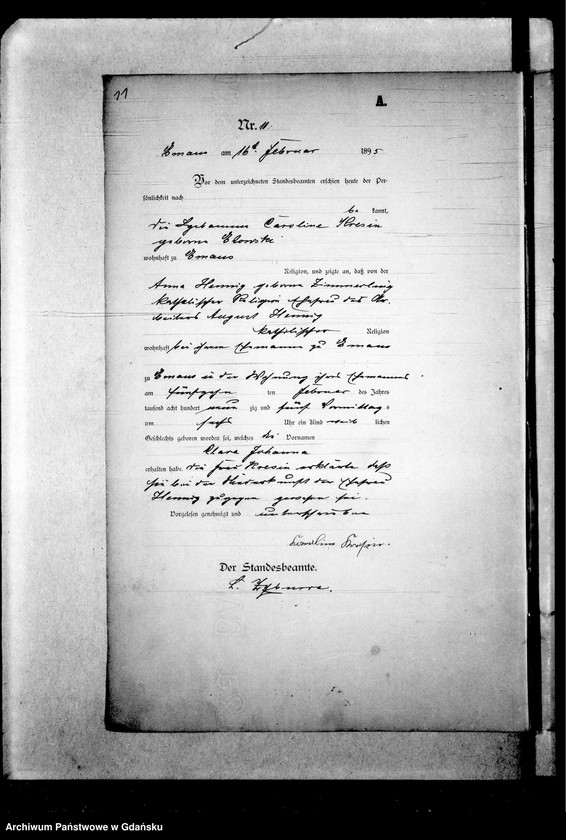 11
A.
Nr. 11.
Emaus am 16t Februar 1895
Vor dem unterzeichneten Standesbeamten erschien heute der Per-
sönlichkeit nach
be kannt,
die Hebamme Caroline Kresin
geborene
wohnhaft zu Emaus
Religion, und zeigte an, daß von der
Anna Hennig geborene Zimmerling
katholischer Religion Ehefrau des Ar-
beiters August Hennig
katholischer Religion
wohnhaft bei ihrem Ehemanne zu Emaus
zu Emaus in der Wohnung ihres Ehemannes
am fünfzehn ten Februar des Jahres
tausend acht hundert neun zig und fünf Vormittags
um sechs Uhr ein Kind weib lichen
Geschlechts geboren worden sei, welches die Vornamen
Clara Johanna
erhalten habe. Die Frau Kresin erklärte, daß
sie bei der Niederkunft der Ehefrau
Hennig zugegen gewesen sei.
Vorgelesen genehmigt und unterschrieben
Karoline Kresin.
Der Standesbeamte.
Archiwum Państwowe w Gdańsku